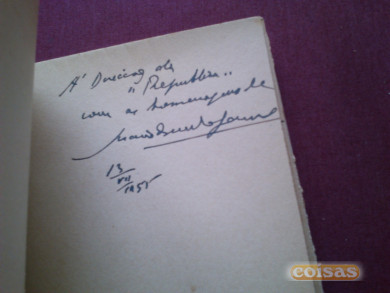 A' Direcção de
"República"
com as homenagens de
13
VII
1955
coisas